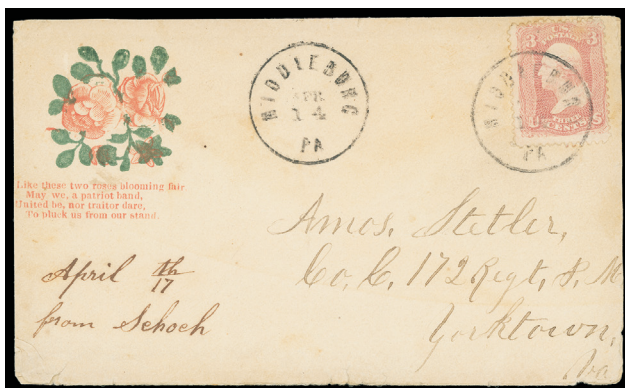 MIDDLEBURG
APR
14
PA
U.S. POSTAGE
3 3
THREE
CENTS
MIDDLEBURG
PA
Like these two roses blooming fair
May we, a patriot band,
United be, nor traitor dare,
To pluck us from our stand.
Amos. Stetler,
Co, C, 172 Regt, P. M
Yorktown,
Va
April 17th
from Schoch